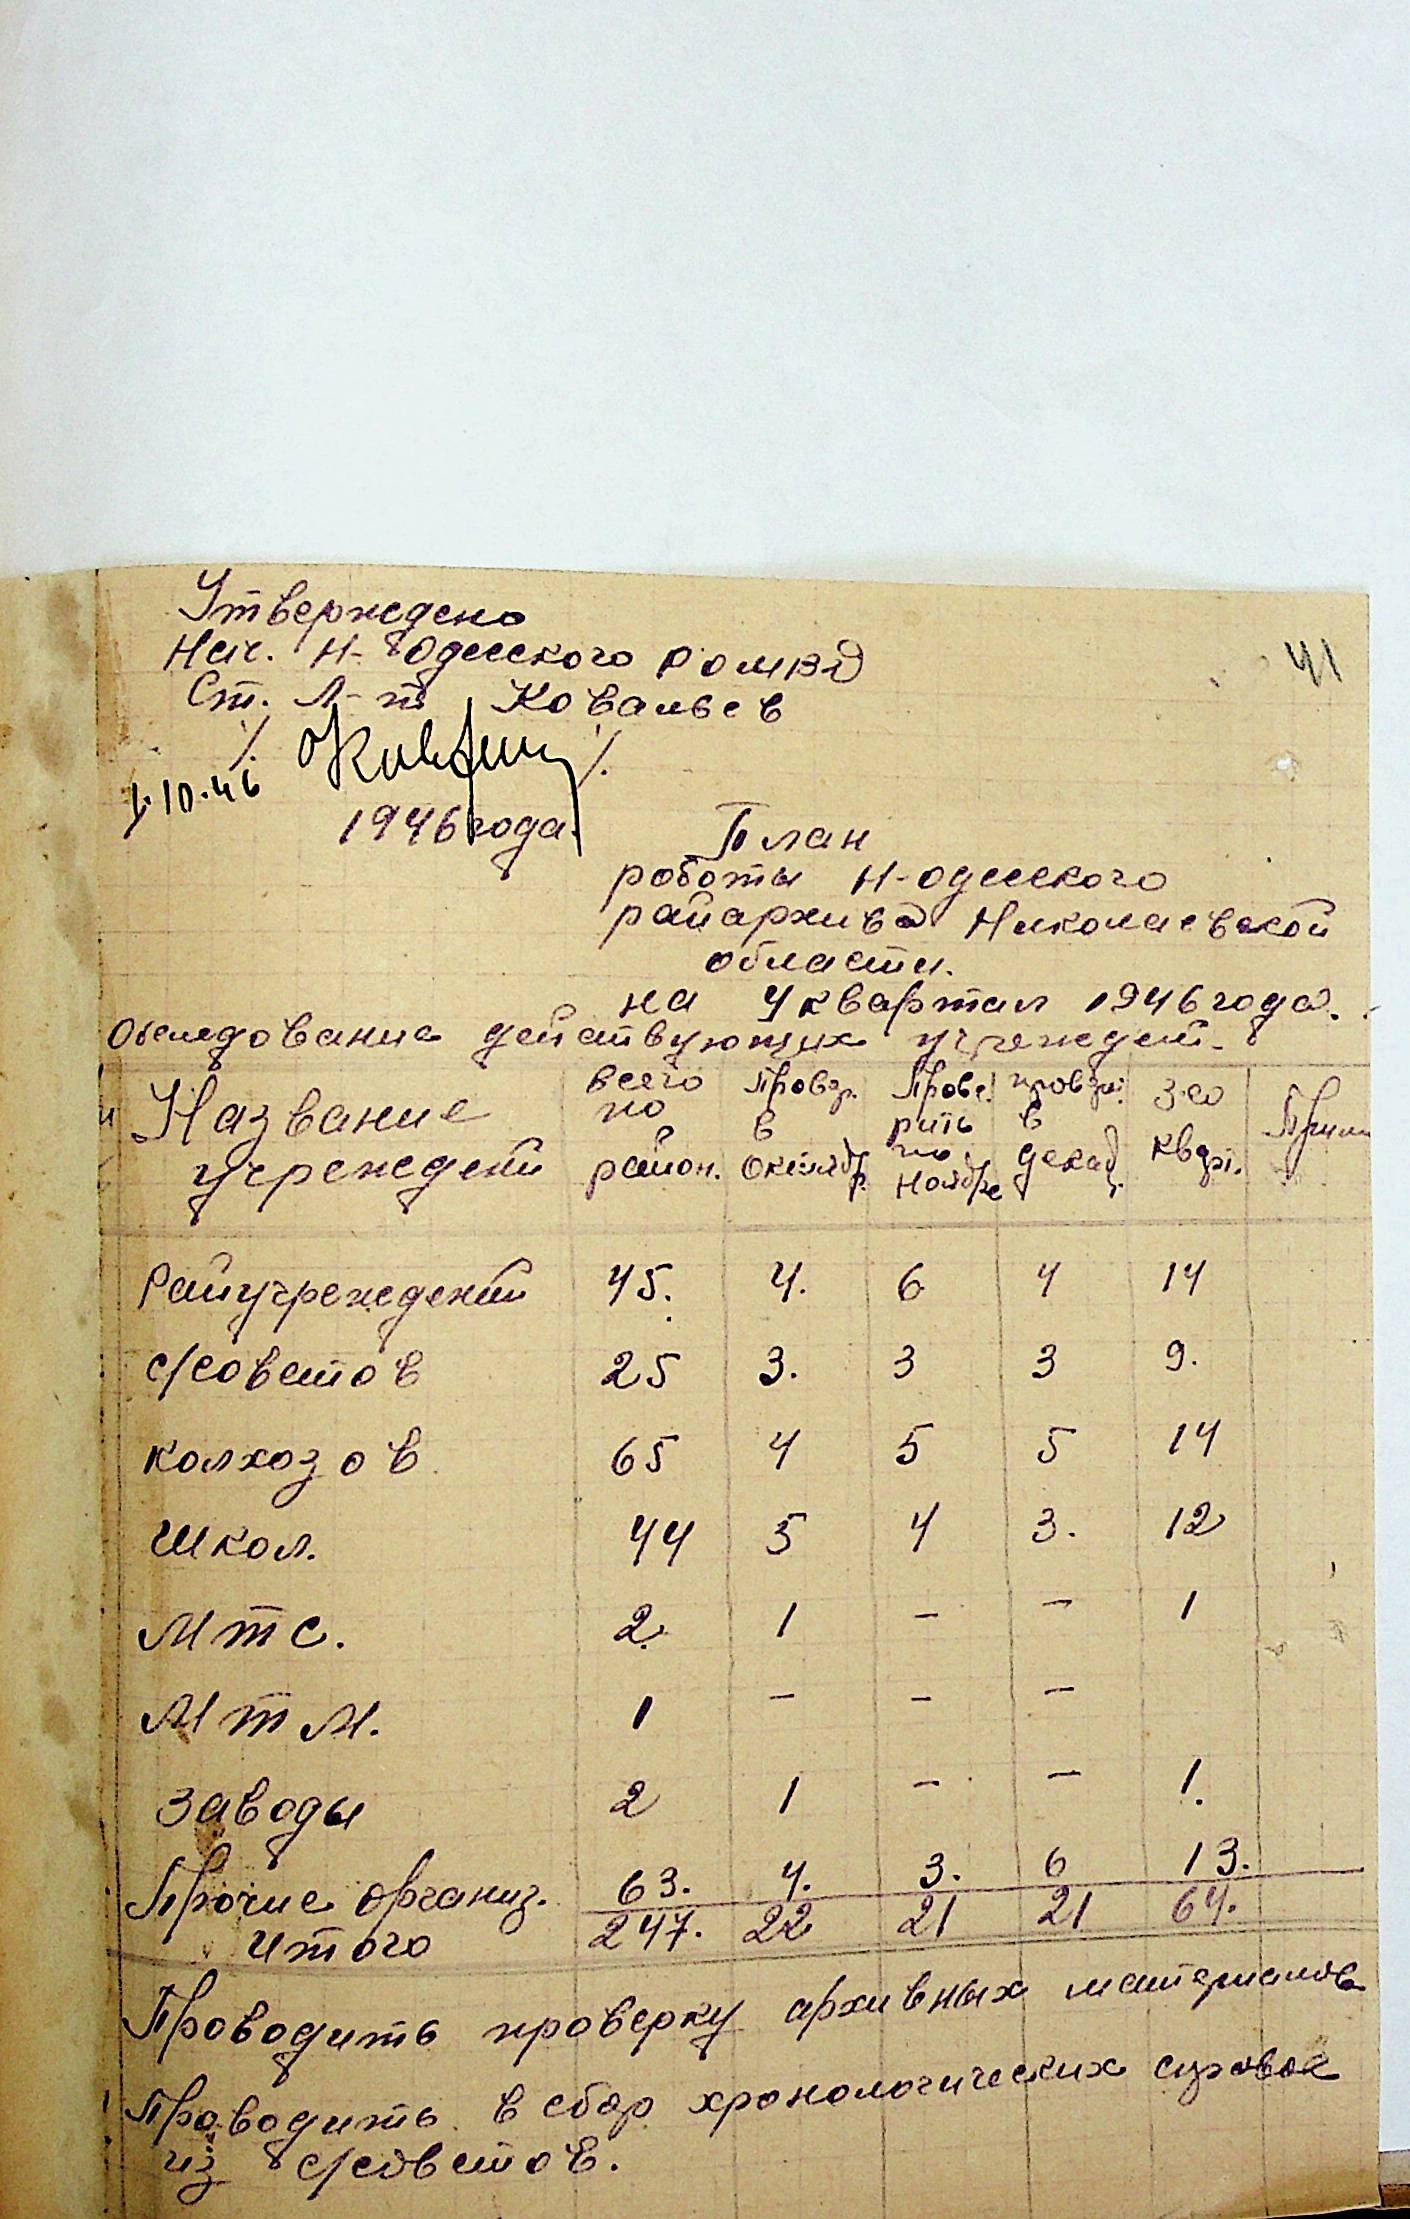 Утверждено
Нач. Н-Одесского РОМВД
Ст. Л-т Ковальев
41
1.10.46
1946 года.
План
роботы Н-Одесского
райархива Николаевской
области.
на 4 квартал 1946 года.
Обследование действующих учрежден.
Название учреждений всего по район. Провер. в октябр. Прове рить по ноябре провери. в декаб. за кварт. Прим
Райучреждений 45. 4. 6 4 14
с/советов 25 3. 3 3 9.
колхозов 65 4 5 5 14
школ. 44 5 4 3. 12
МТС. 2. 1 – – 1
МТМ. 1 – – –
заводы 2 1 – – 1.
Прочие организ. 63. 4. 3. 6 13.
Итого 247. 22 21 21 64.
Проводить проверку архивных материалов
Проводить в сбор хронологических справок
из с/советов.